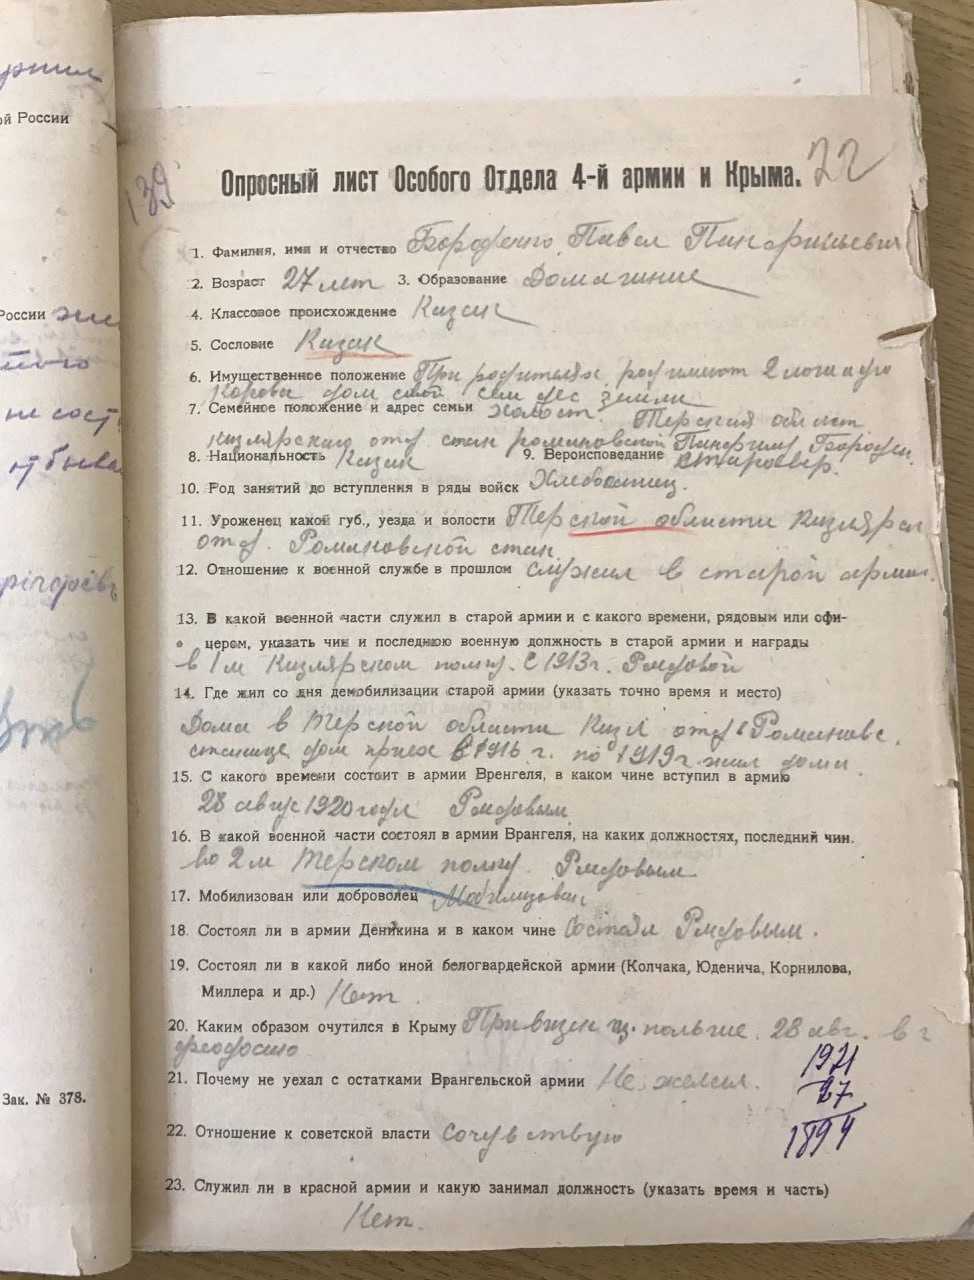 ой России
России
Зак. № 378.
139
22
Опросный лист Особого Отдела 4-й армии и Крыма.
1. Фамилия, имя и отчество Бороденко Павел
2. Возраст 27 лет 3. Образование Домашние
4. Классовое происхождение Казак
5. Сословие Казак
6. Имущественное положение При родителях, род имеют 2 лошади
корова дом свой сем дес земли
7. Семейное положение и адрес семьи холост. Терския област
кизлярскаго отд стан романовской
8. Национальность Казак 9. Вероисповедание старовер.
10. Род занятий до вступления в ряды войск
11. Уроженец какой губ., уезда и волости Терской области Кизлярск
отд. Романовской стан
12. Отношение к военной службе в прошлом служил в старой армии.
13. В какой военной части служил в старой армии и с какого времени, рядовым или офи-
цером, указать чин и последнюю военную должность в старой армии и награды
в 1м Кизлярском полку. С 1913г. Рядовой
14. Где жил со дня демобилизации старой армии (указать точно время и место)
Дома в Терской области Кизл отд в Романовс.
станице дом приех в 1916 г. по 1919г жил дома
15. С какого времени состоит в армии Вренгеля, в каком чине вступил в армию
28 авгус 1920 года Рядовым
16. В какой военной части состоял в армии Врангеля, на каких должностях, последний чин.
во 2м Терском полку. Рядовым
17. Мобилизован или доброволец Мобилизован
18. Состоял ли в армии Деникина и в каком чине Состоял Рядовым.
19. Состоял ли в какой либо иной белогвардейской армии (Колчака, Юденича, Корнилова,
Миллера и др.) Нет.
20. Каким образом очутился в Крыму Привезен из польше. 28 авг. в г
феодосию
21. Почему не уехал с остатками Врангельской армии Не желал.
1921
27
1894
22. Отношение к советской власти Сочувствую
23. Служил ли в красной армии и какую занимал должность (указать время и часть)
Нет.